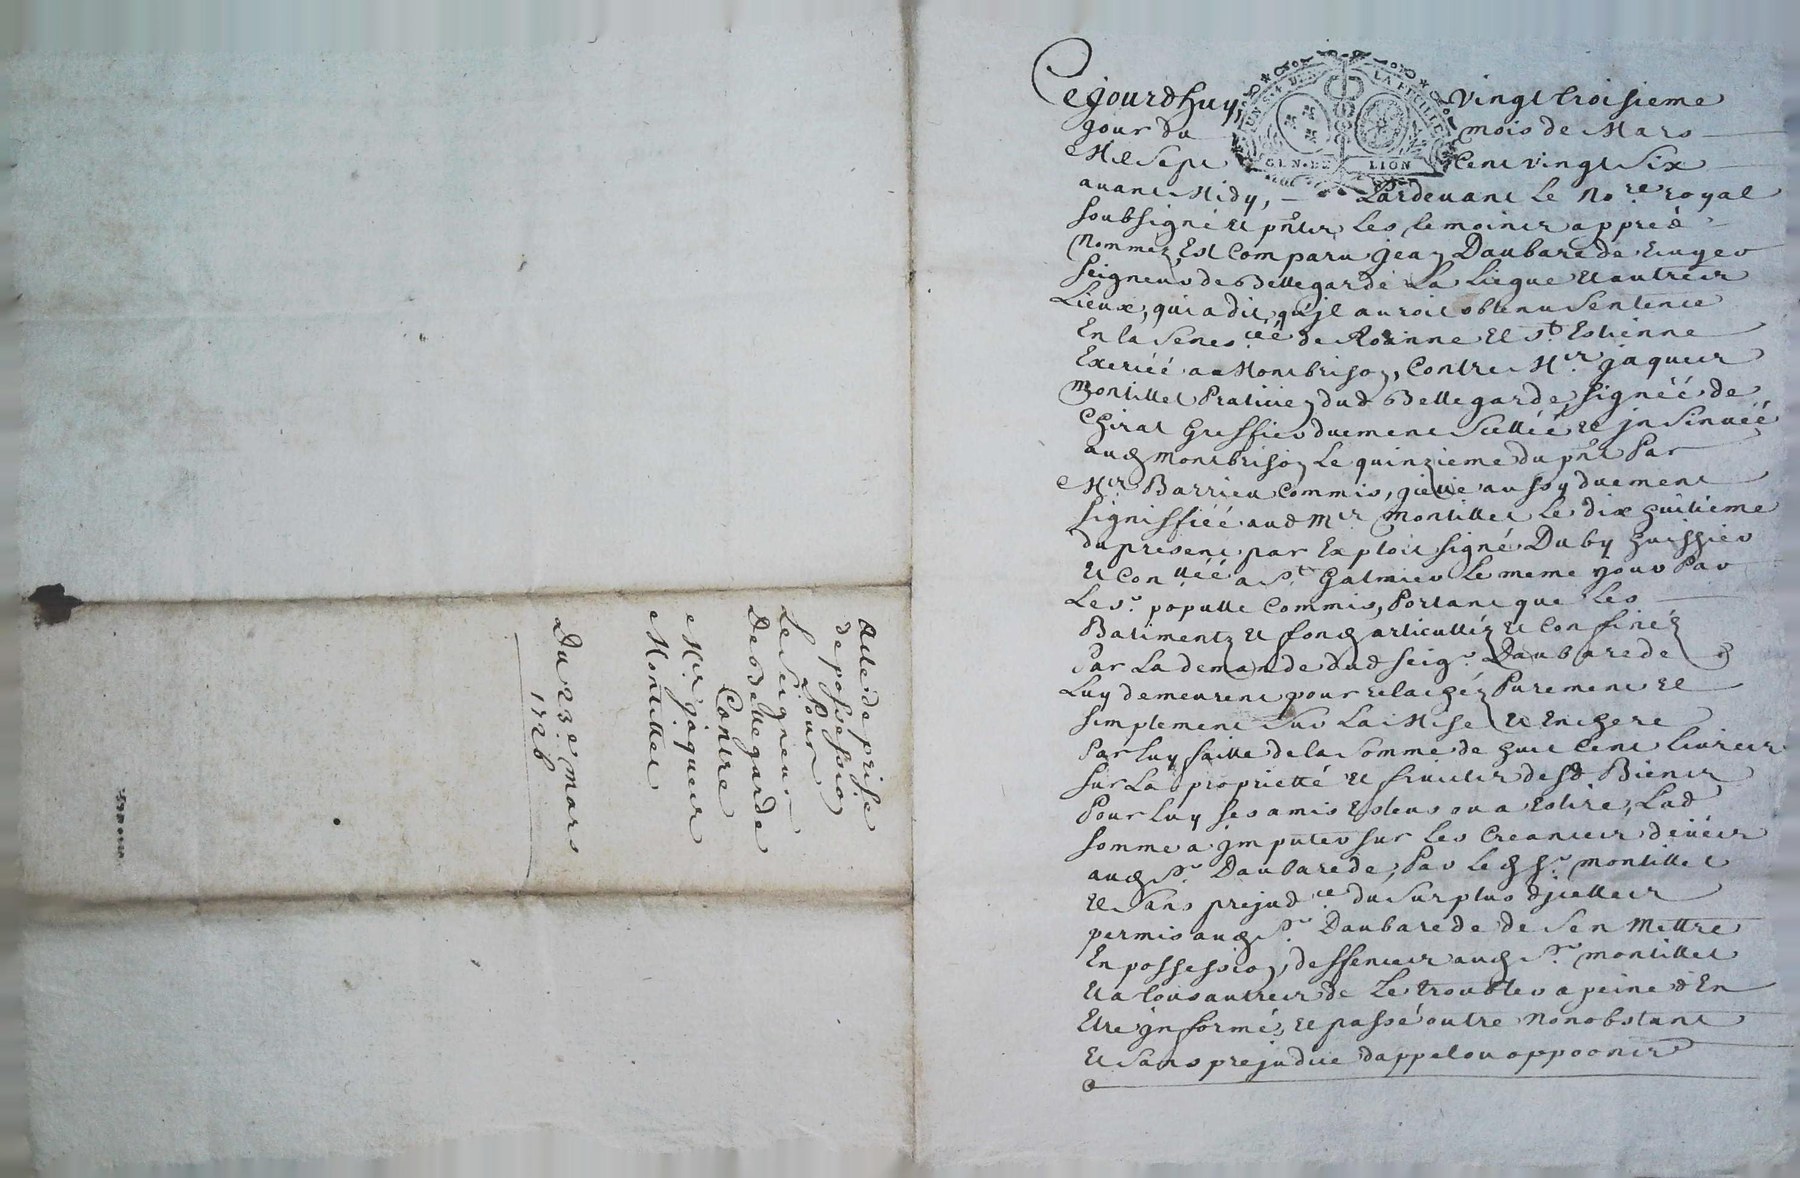 Acte de prise
de possession
Pour
Le Seigneur
De Bellegarde
Contre
Mr jaques
Montillet
Du 23e mars
1726
UN S. 4 D. LA FEUILLE
GEN. DE LION
Cejourdhuy vingt troisieme
jour du mois de Mars
Mil sept Cent vingt Six
avant Midy, Pardevant Le No.re royal
soubsigné et pnts Les temoins appres
Nommez, Est Comparu jean Daubarede Ecuyer
seigneur de Bellegarde La Liegue et autres
Lieux, qui a dit qu'jl auroit obtenu Sentence
En la Senes.cée de Roanne et St. Estienne
Exercéé a Montbrison, Contre Mr. jaques
montillet Praticien dud Bellegarde, signéé de
Chirat Greffier duement Scelléé et jnsinuéé
aud montbrison Le quinzieme du pnt Par
Mr Barrieu Commis, jcelle aussy duement
signiffiéé aud Mr montillet Le dix huitieme
du present par Exploit signé Duby huissier
et Con.lléé a St. Galmier Le meme jour Par
Le Sr. populle Commis, Portant que Les
Batiments et fonds articullez et Confinez
Par La demande dud Seigr. Daubarede
Luy demeurent pour relachéz Purement et
simplement Sur La Mise et Enchere
Par Luy faitte de la Somme de huit Cent livres
sur La proprietté et fruicts desd Biens
Pour Luy ses amis Esleus ou a Eslire, Lad
somme a jmputer sur Les Creances deües
aud Sr. Daubarede, Par Led Sr. montillet
et Sans prejud.ce du Surplus djcelles
permis aud Sr. Daubarede de Sen Mettre
En possession, deffences aud Sr. montillet
Et a tous autres de Le troubler a peine d En
Etre jnformé, et passé outre Nonobstant
Et Sans prejudice dappel ou oppoons